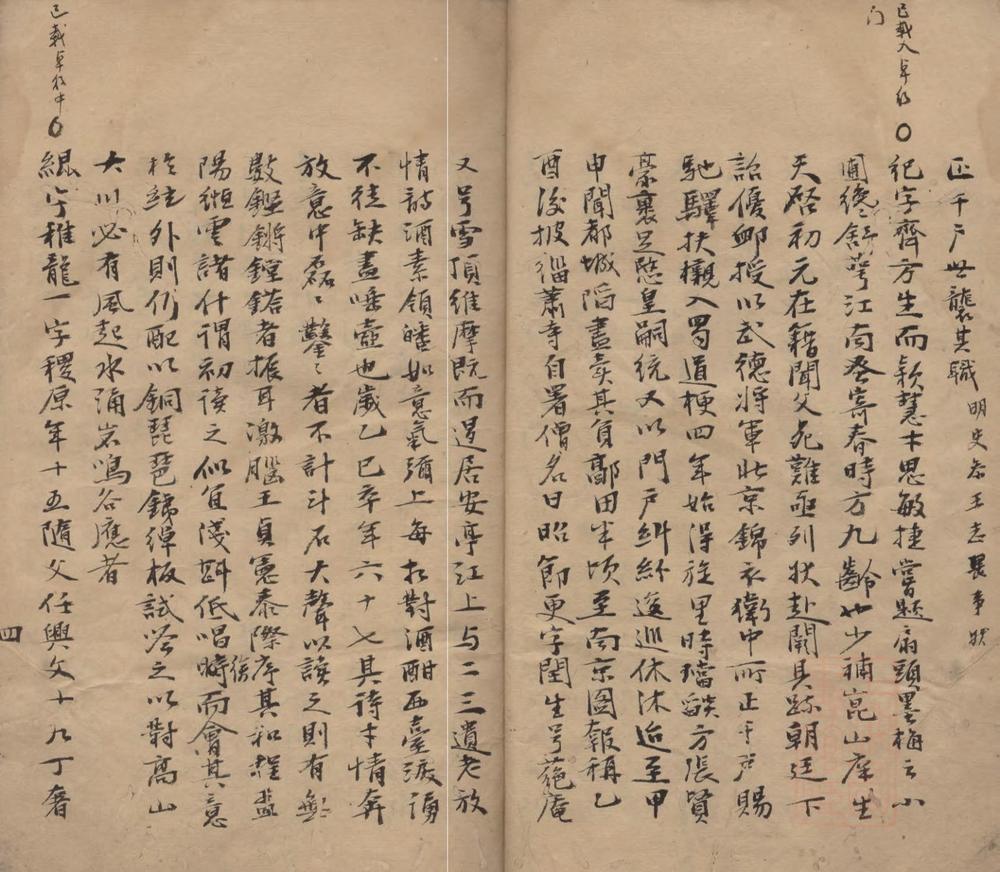 正千户世襲其職 明史忝王志長事狀
已载入卓行门
紀字齊方生而颖慧才思敏捷嘗题扇頭墨梅云小
圃繞舒萼江南蚤寄春時方九齡也少補崑山庠生
天啓初元在籍聞父死難亟列狀赴闕具疏朝廷下
詔優卹授以武德將軍北京錦衣衛中所正千户賜
馳驛扶櫬入蜀道梗四年始得旋里時璫燄方張賢
豪裹足愍皇嗣統又以門户糾紛逡巡休沐迨至甲
申聞都城陷盡卖其負郭田半頃至南京圖報稱乙
酉後披緇蕭寺自署僧名曰昭節更字閏生号葩庵
又号雪頂維摩既而退居安亭江上与二三遺老放
情詩酒素领皤如意氣彌上每相對酒酣西臺淚湧
不徒缺盡唾壺也歲乙巳卒年六十七其待本情奔
放意中磊磊鑿鑿者不計斗石大聲以讀之則有
數鏗鏘鏜鎝者振耳激腦王貞憲泰際序其和程孟
陽緪雲諸什谓初读之似宜浅斟低唱時而會其意
於絃外則仍配以銅琵琶錦綽板試答之以對高山
大川必有風起水涌岩鳴谷應者
已载卓行中
緄字稚龍一字稷原年十五隨父任興文十九丁奢
四